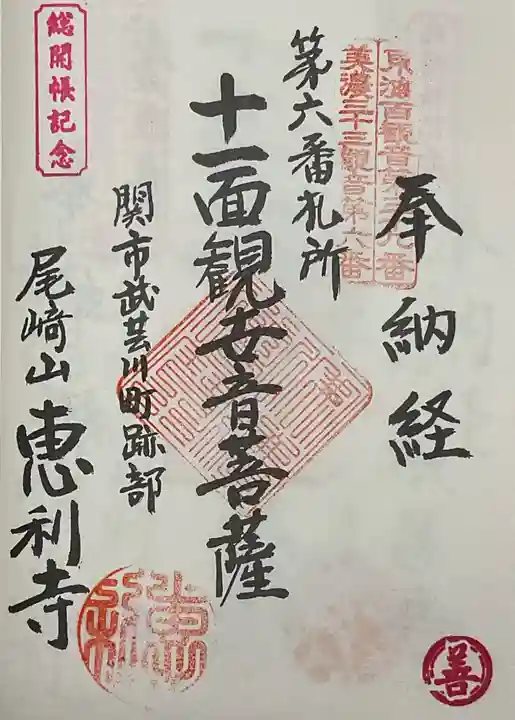 奉納経
東海百観音第三十九番
美濃三十三観音第六番
第六番札所
十一面観世音菩薩
関市武芸川町跡部
尾﨑山 恵利寺
総開帳記念
善